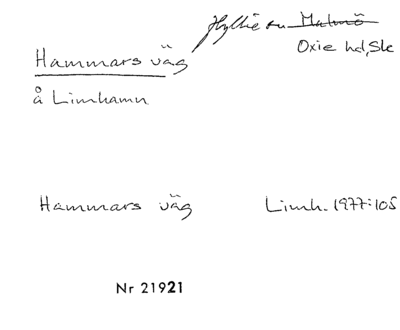 Hyllie sn Malmö
Oxie hd, Sk
Hammars väg
å Limhamn
Hammars väg Limh. 1977:105
Nr 21921